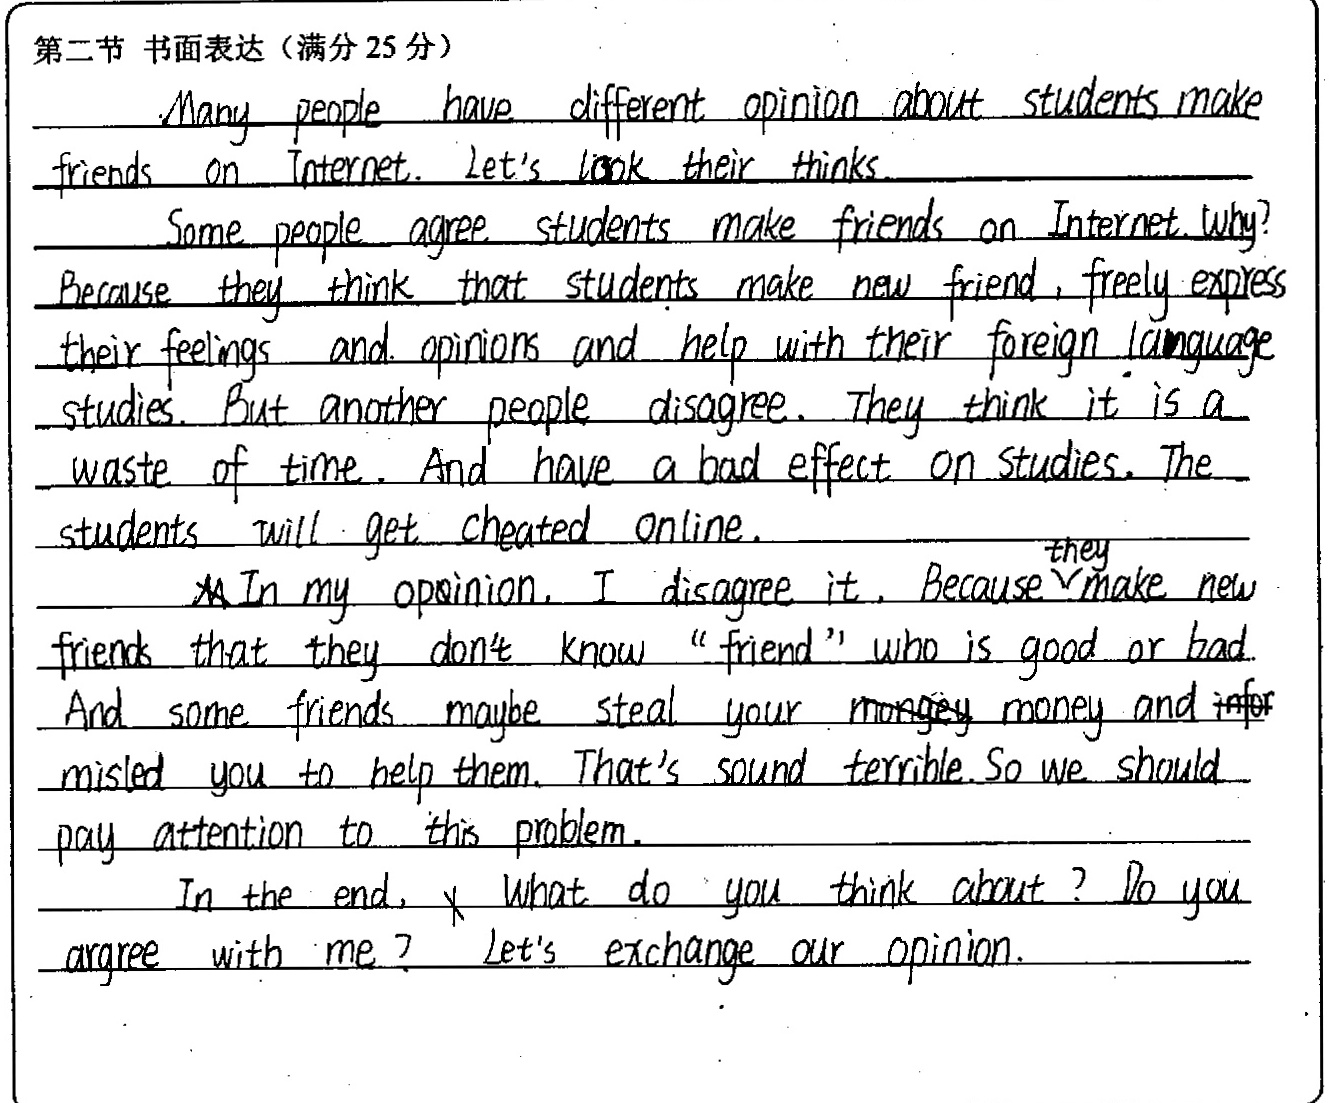 第二节 书面表达（满分 25 分）
Many people have different opinion about students make
friends on Internet. Let's look their thinks.
Some people agree students make friends on Internet. Why?
Because they think that students make new friend, freely express
their feelings and opinions and help with their foreign language
studies. But another people disagree. They think it is a
waste of time. And have a bad effect on studies. The
students will get cheated online.
they
In my opoinion, I disagree it. Because make new
friends that they don't know "friend" who is good or bad.
And some friends maybe steal your money and
misled you to help them. That's sound terrible. So we should
pay attention to this problem.
In the end, What do you think about? Do you
argree with me? Let's exchange our opinion.